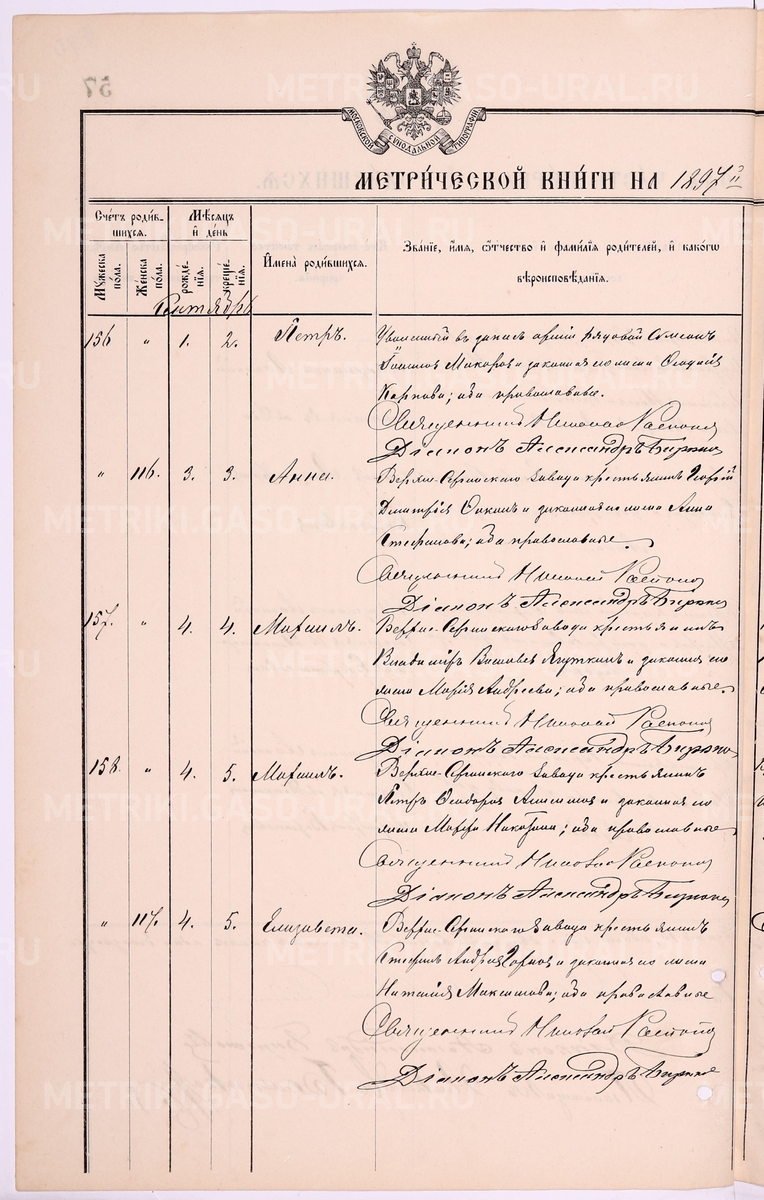 57
МОСКОВСКОЙ СѴНОДАЛЬНОЙ ТИПОГРАФІИ
МЕТРИ́ЧЕСКОЙ КНИ́ГИ НА 1897
Сче́тъ роди́в-
шихся.
Мѣ́сяцъ
и҆ де́нь
И҆мена̀ роди́вшихся.
Зва́нїе, и҆́мя, ѻ҆́тчество и҆ фами́лїя роди́телей, и҆ како́гѡ
вѣроисповѣ́данїя.
Му́жеска по́ла.
Же́нска по́ла.
рожде́нїя.
креще́нїя.
Сентябрь
156 " 1. 2. Петръ. Уволенный въ запасъ арміи рядовой Симеонъ
Макаровъ и законная его жена
Карпова; оба православные.
Священникъ Николай
Діаконъ Александръ
" 116. 3. 3. Анна. Верхне-Сергинскаго завода крестьянинъ Георгій
Димитріевъ и законная его жена Анна
Стефанова; оба православные.
Священникъ Николай
Діаконъ Александръ
157. " 4. 4. Михаилъ. Верхне-Сергинскаго завода крестьянинъ
Владиміръ Васильевъ Ягуткинъ и законная его
жена Марія Андреева; оба православные.
Священникъ Николай
Діаконъ Александръ
158. " 4. 5. Михаилъ. Верхне-Сергинскаго завода крестьянинъ
Петръ Ѳеодоровъ и законная его
жена Марѳа; оба православные
Священникъ Николай
Діаконъ Александръ
" 117. 4. 5. Елизавета. Верхне-Сергинскаго завода крестьянинъ
Стефанъ Андреевъ и законная его жена
Наталія Максимова; оба православные
Священникъ Николай
Діаконъ Александръ
METRIKI.GASO-URAL.RU